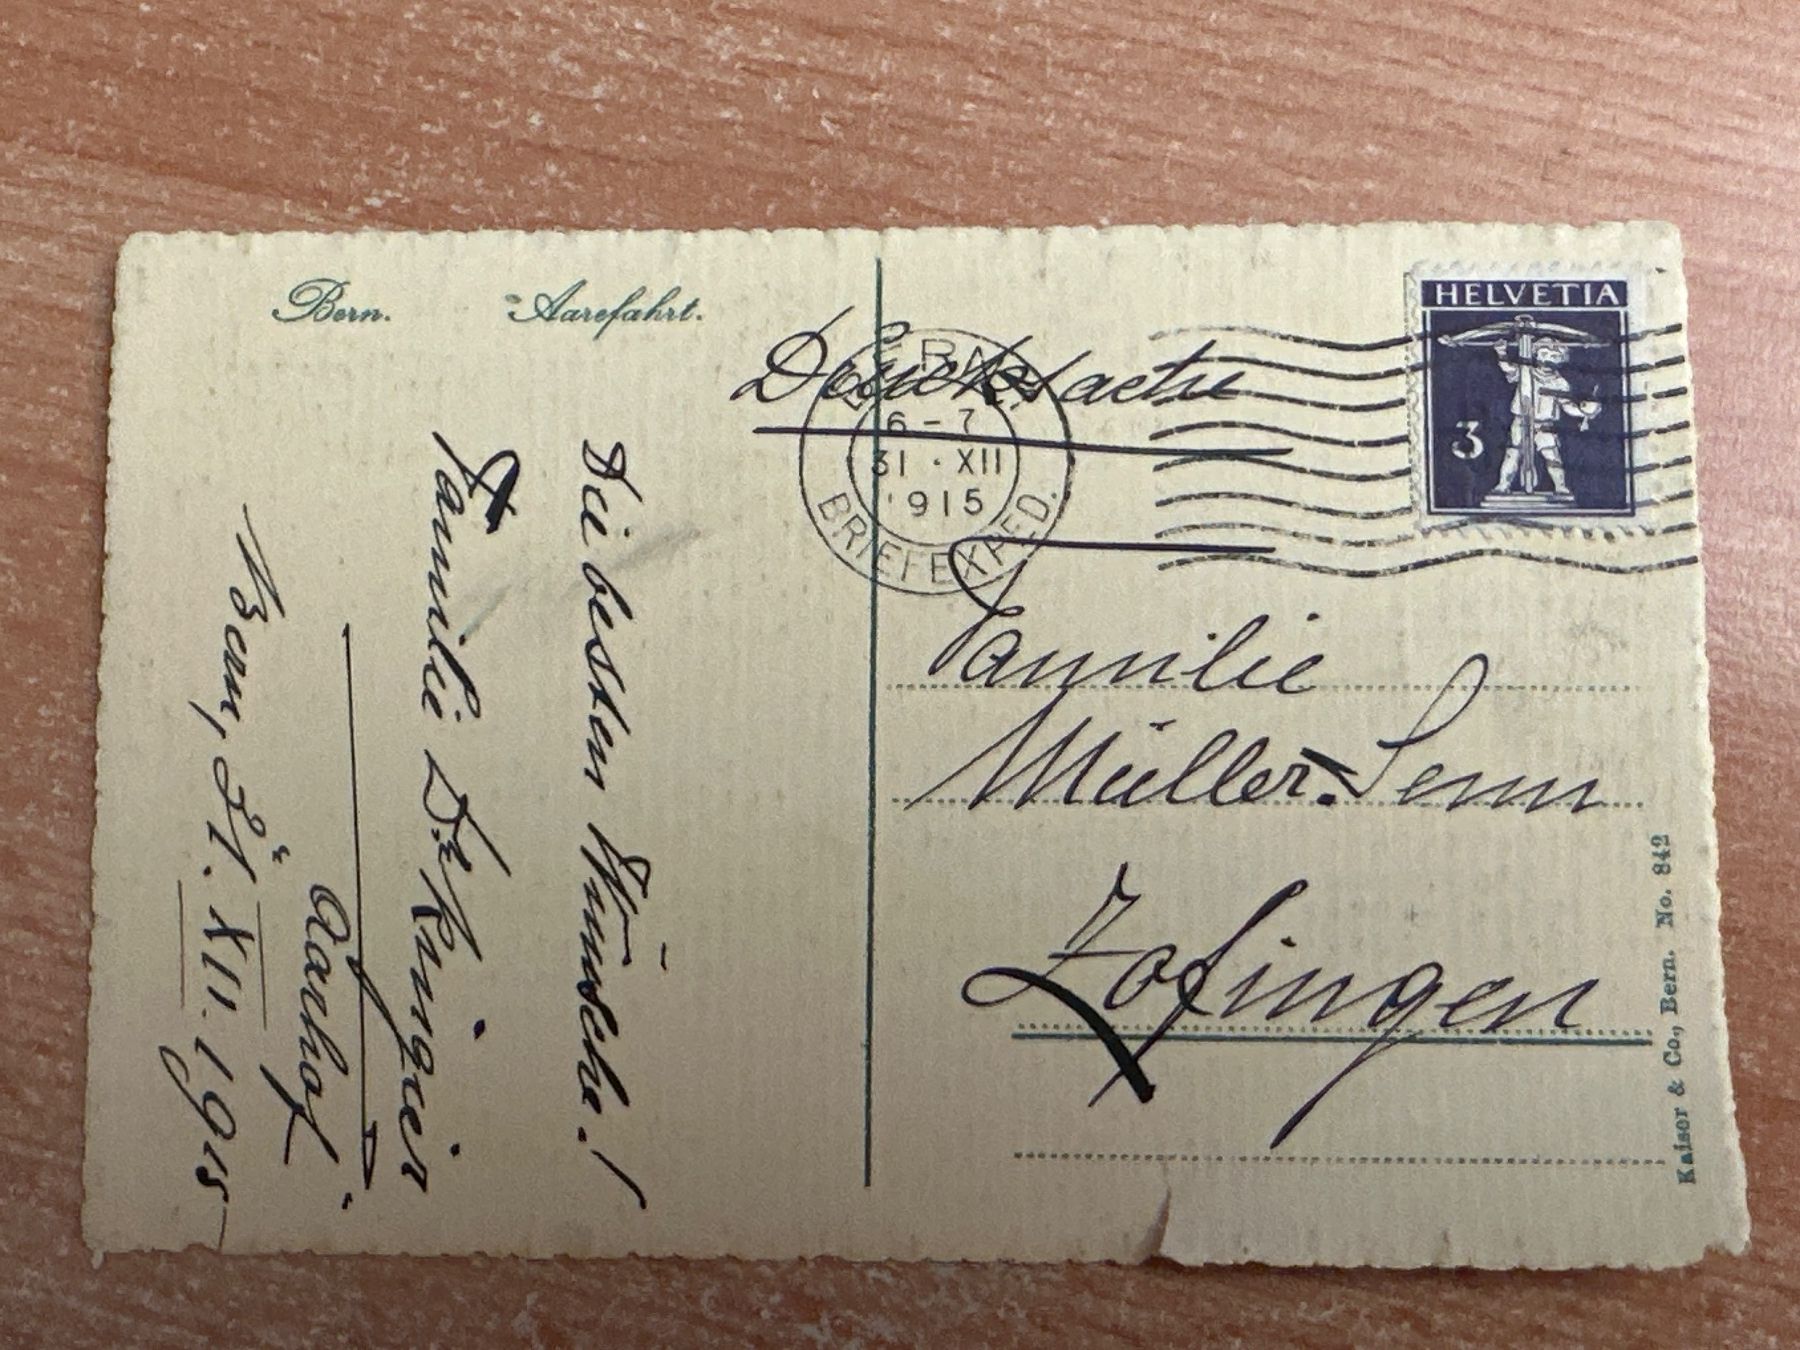 Bern. Aarefahrt.
Drucksache
BERN
6-7
31·XII
1915
BRIEFEXPED.
HELVETIA
3
Familie
Müller-Senn
Zofingen
Kaiser & Co., Bern. No. 842
Die besten Wünsche!
Familie Dr. Ringier
"Aarhof"
Bern, 31. XII. 1915